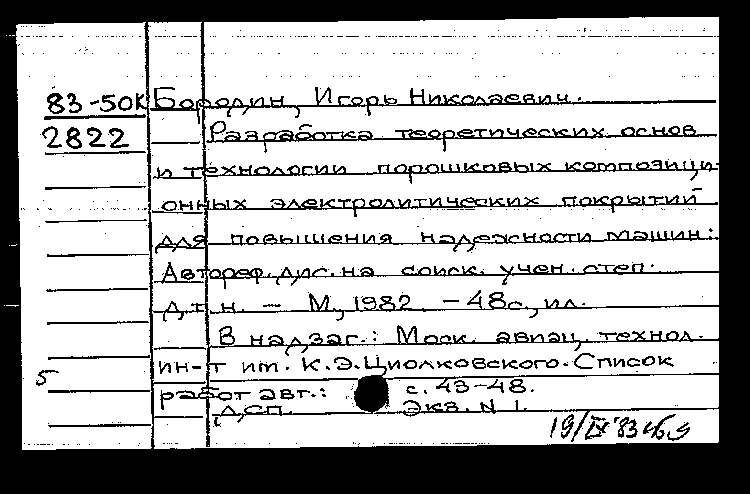 83-50К Бородин, Игорь Николаевич.
2822 Разработка теоретических основ
и технологии порошковых композици-
онных электролитических покрытий
для повышения надежности машин:
Автореф. дис. на соиск. учен. степ.
д.т.н. - М., 1982. - 48с., ил.
В надзаг.: Моск. авиац. технол.
ин-т им. К.Э.Циолковского. Список
5
работ авт.: с. 43-48.
ДСП. Экз. N 1.
19/IX 83